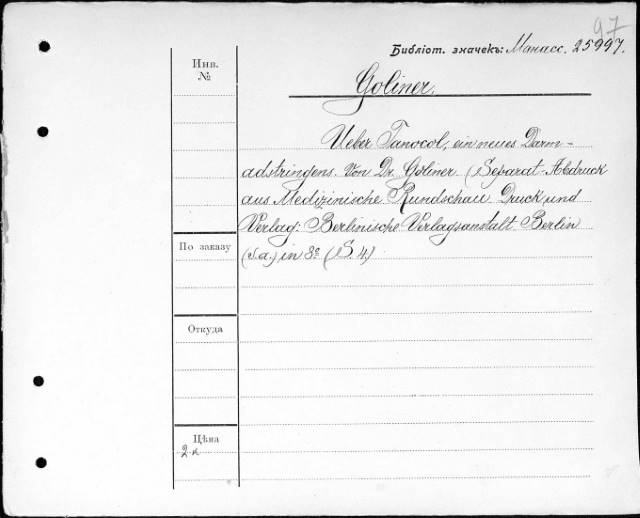 97
Библіот. значекъ: Манасс. 25997.
Инв.
№
Goliner.
Ueber Tanocol, ein neues Darm-
adstringens. Von Dr. Goliner. (Separat-Abdruck
aus Medizinische Rundschau. Druck und
Verlag: Berlinische Verlagsanstalt. Berlin
(s.a.) in 8º (S. 4.)
По заказу
Откуда
Цѣна